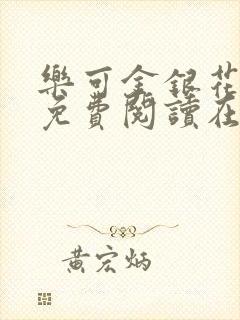 樂可金銀花
免費閱讀在
黃宏炳